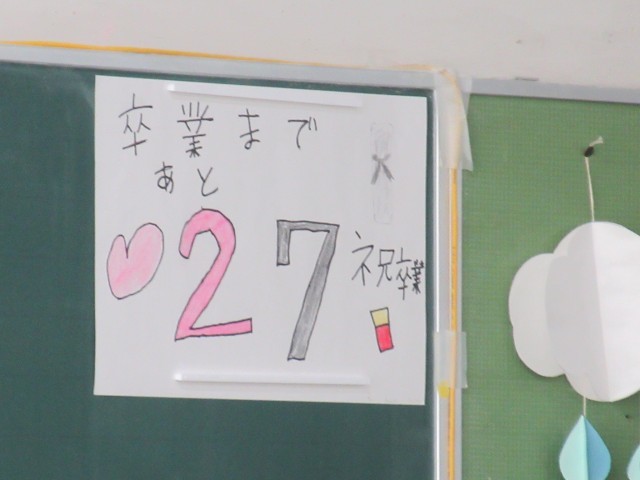 卒業まで
あと
27
祝卒業